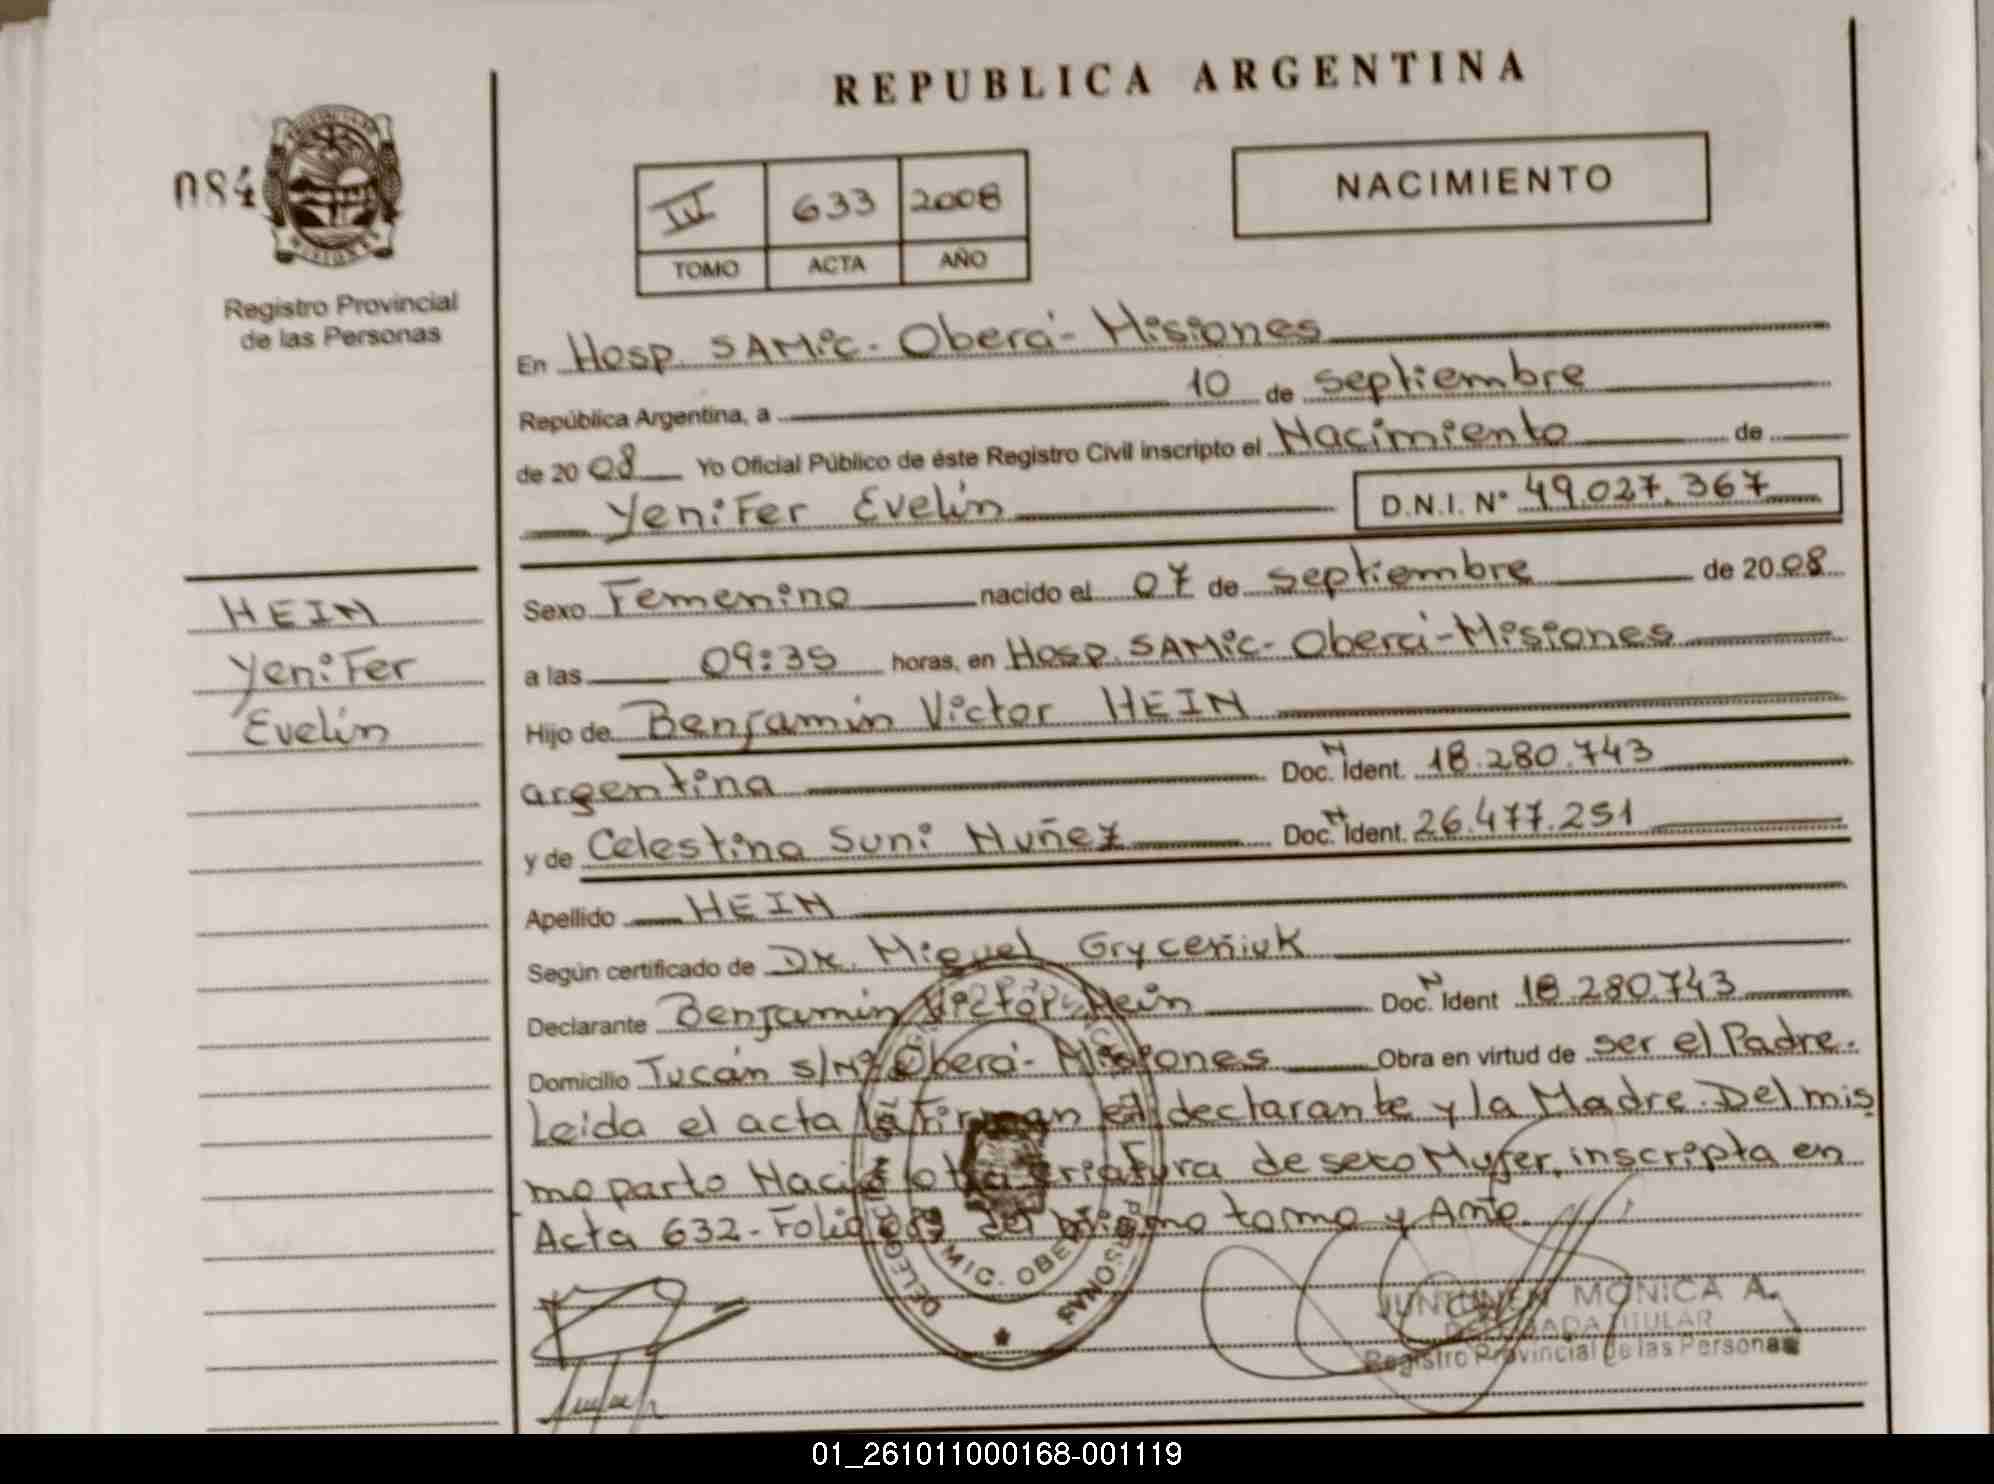 REPUBLICA ARGENTINA
084
MISIONES
Registro Provincial
de las Personas
IV 633 2008
TOMO ACTA AÑO
NACIMIENTO
En Hosp. SAMic - Oberá - Misiones
República Argentina, a 10 de septiembre
de 2008 Yo Oficial Público de éste Registro Civil inscripto el Nacimiento de
Yenifer Evelin D.N.I. N° 49.027.367
HEIN
Yenifer
Evelin
Sexo Femenino nacido el 07 de septiembre de 2008
a las 09:35 horas, en Hosp. SAMic - Oberá - Misiones
Hijo de Benjamin Victor HEIN
argentina Doc. N Ident. 18.280.743
y de Celestina Suni Nuñez Doc. N Ident. 26.477.251
Apellido HEIN
Según certificado de Dr. Miguel Gryceñiuk
Declarante Benjamin Victor Hein Doc. N Ident 18.280.743
Domicilio Tucán s/Nº Oberá - Misiones Obra en virtud de ser el Padre.
Leida el acta la Firman el declarante y la Madre. Del mis
mo parto Nació otra criatura de sexo Mujer, inscripta en
Acta 632 - Folio del mismo tomo y Año.
MIG. OBE
PERSONAS
JUNTUNEN MONICA A.
DELEGADA TITULAR
Registro Provincial de las Personas
01_261011000168-001119